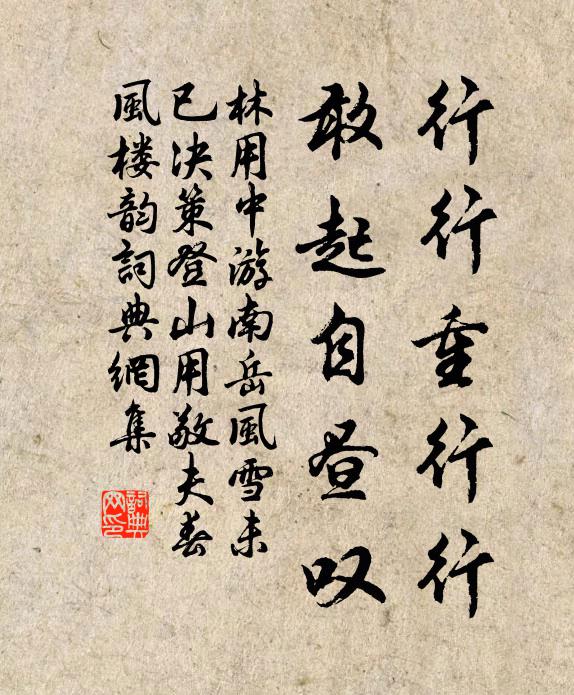 行行重行行
敢起自昼叹
林用中游南岳風雪未
已决策登山用敬夫春
風楼韵詞典網集
詞典网印